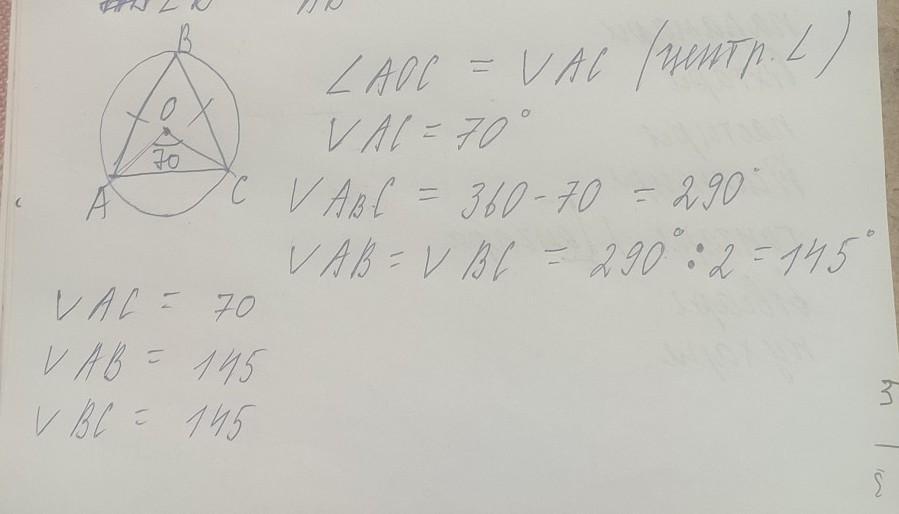 B
O
70
A
C
∠AOC = ∨AC (центр. ∠)
∨AC = 70°
∨ABC = 360 - 70 = 290°
∨AB = ∨BC = 290° : 2 = 145°
∨AC = 70
∨AB = 145
∨BC = 145